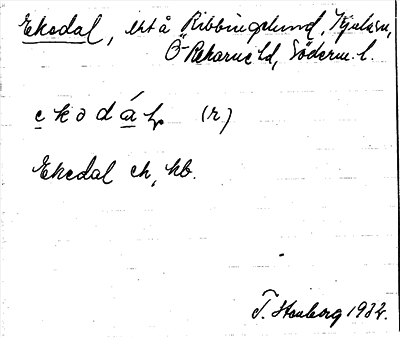 Eksdal, ert å Ribbingelund, Kjulasn,
Ö Rekarne ld, Söderm. l.
ekədál (r.)
Ekedal ek, kb.
T. Hamberg 1932.